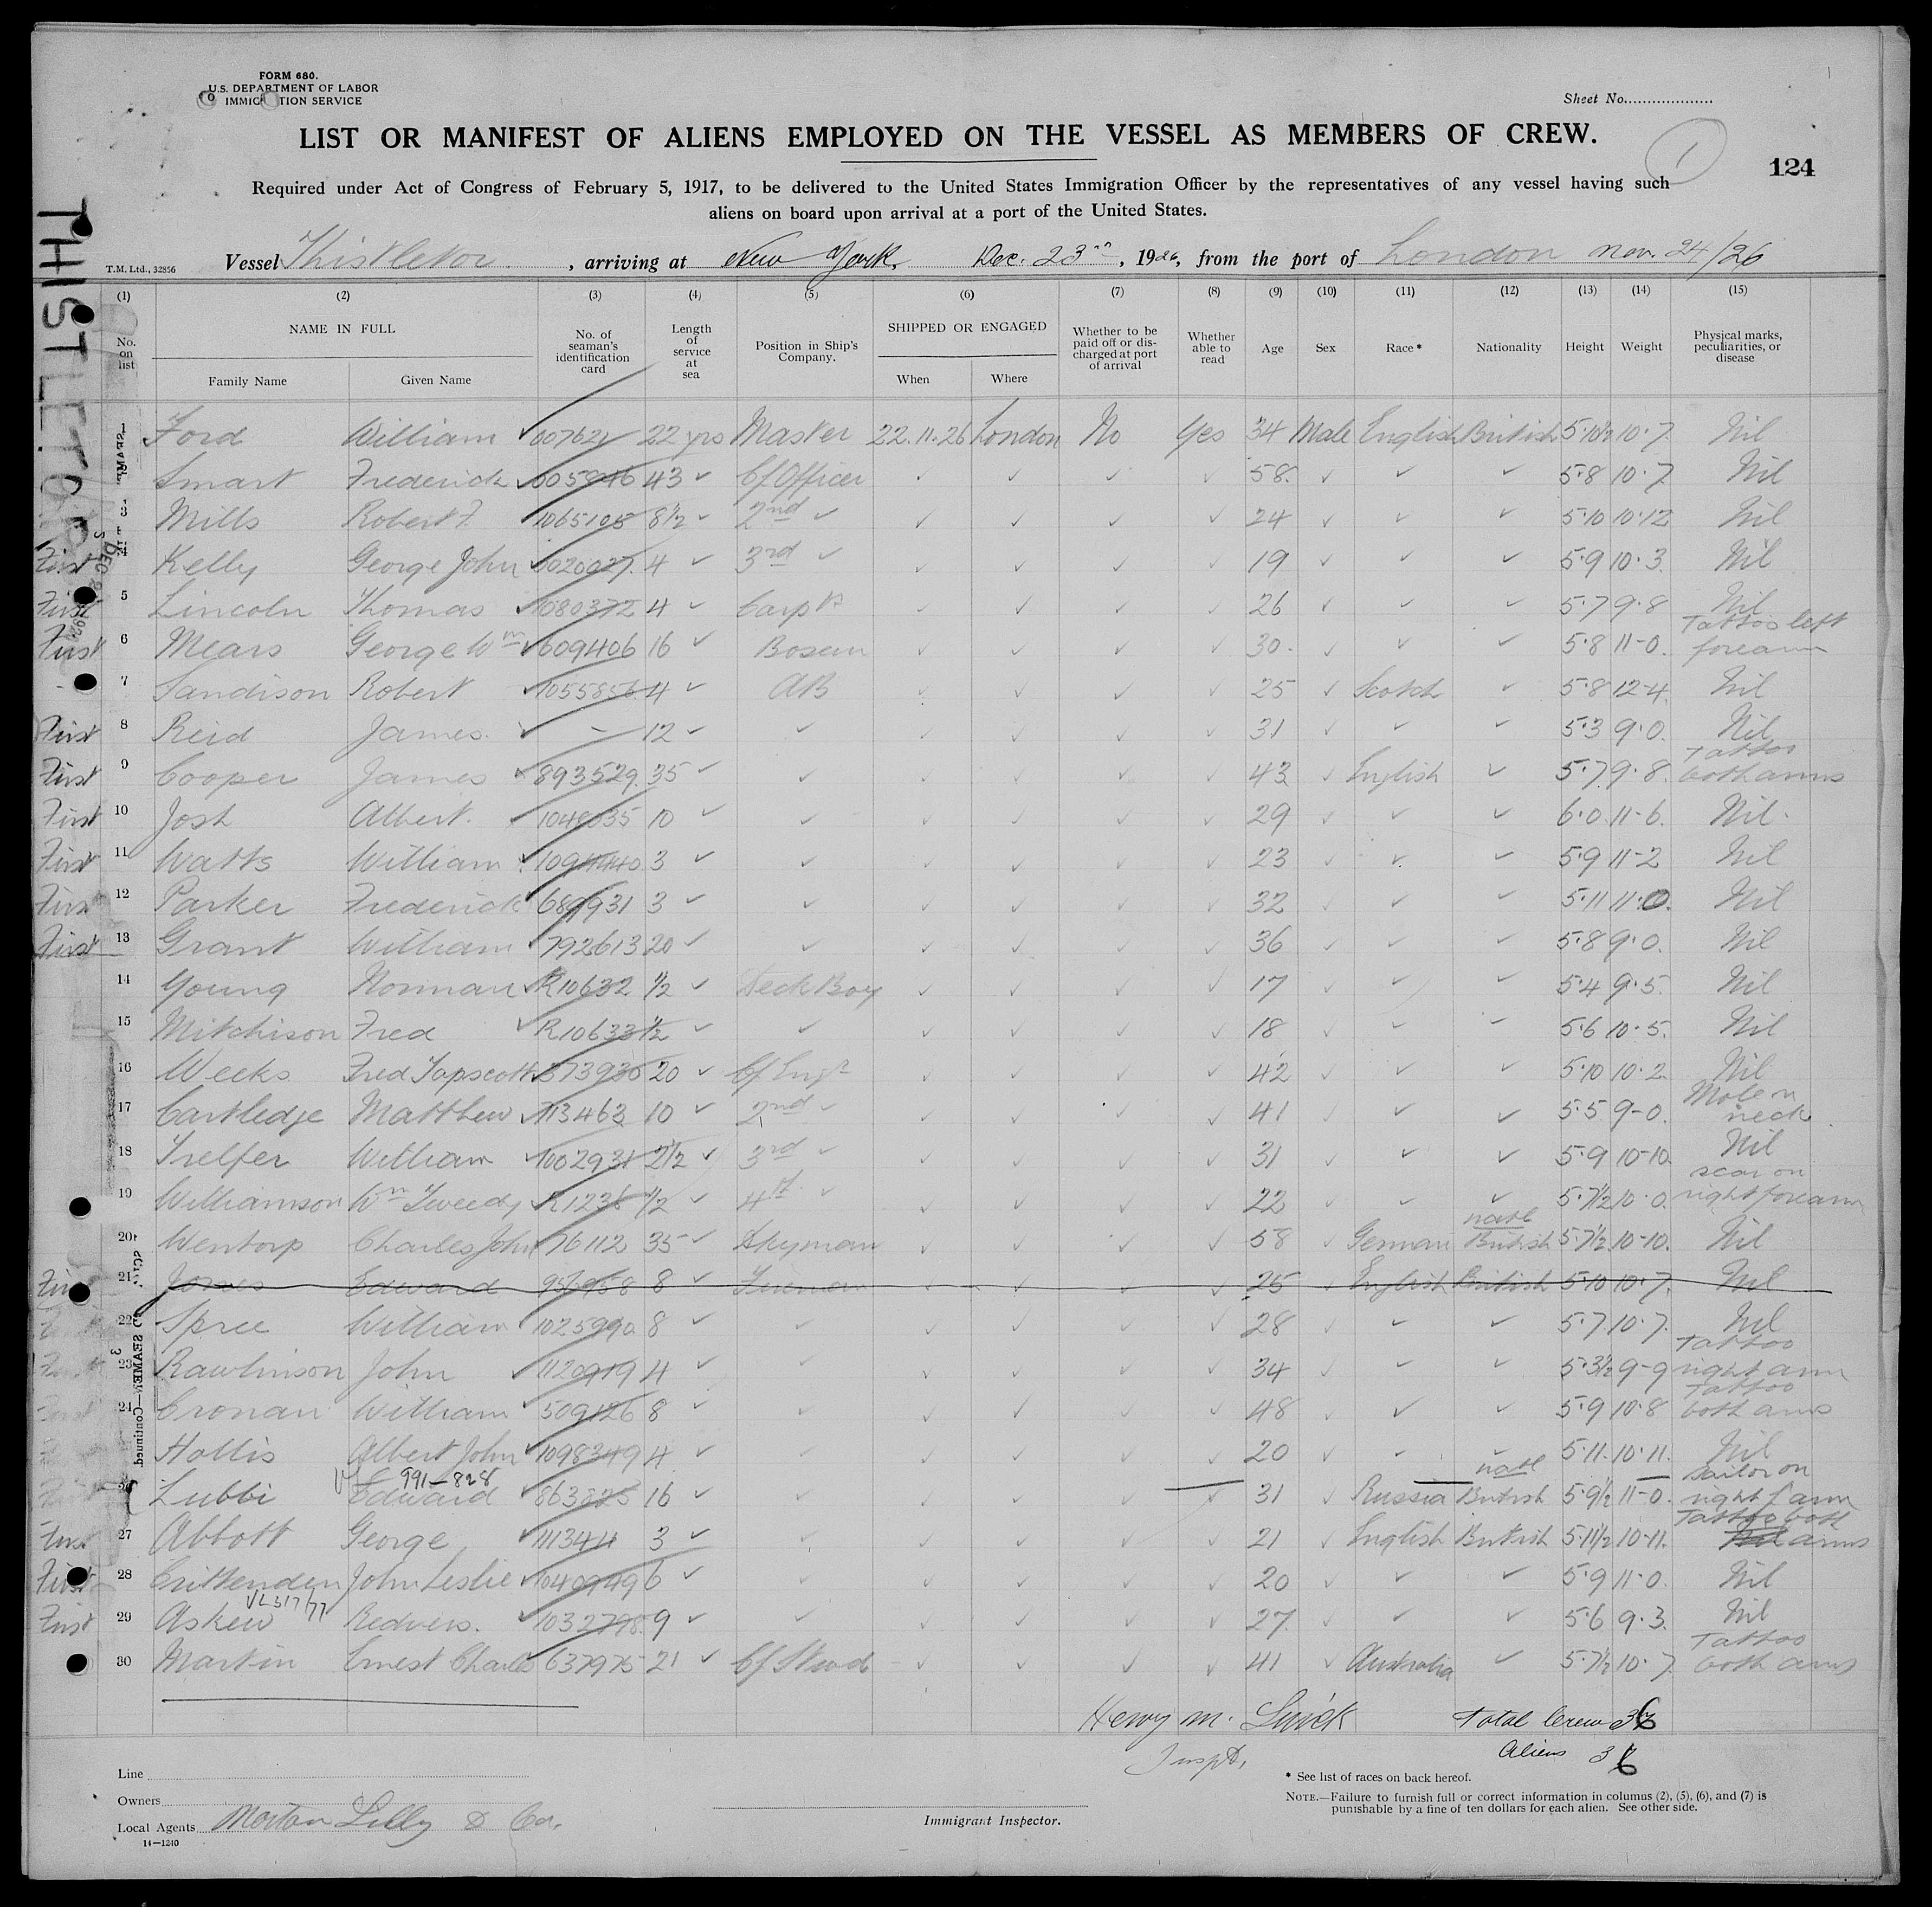 FORM 680.
U.S. DEPARTMENT OF LABOR
IMMIGRATION SERVICE
Sheet No.
LIST OR MANIFEST OF ALIENS EMPLOYED ON THE VESSEL AS MEMBERS OF CREW.
1
124
Required under Act of Congress of February 5, 1917, to be delivered to the United States Immigration Officer by the representatives of any vessel having such
aliens on board upon arrival at a port of the United States.
T.M. Ltd., 32856 Vessel Thistletor, arriving at New York, Dec. 23rd, 1926, from the port of London Nov. 24/26
THISTLETOR
(1) (2) (3) (4) (5) (6) (7) (8) (9) (10) (11) (12) (13) (14) (15)
No. on list NAME IN FULL Family Name Given Name No. of seaman's identification card Length of service at sea Position in Ship's Company. SHIPPED OR ENGAGED When Where Whether to be paid off or discharged at port of arrival Whether able to read Age Sex Race* Nationality Height Weight Physical marks, peculiarities, or disease
1 Ford William 22 yrs Master 22.11.26 London No Yes 34 Male English British 5.10½ 10.7 Nil
2 Smart Frederick 43 ✓ Cf Officer ✓ ✓ ✓ 58 ✓ ✓ ✓ 5.8 10.7 Nil
3 Mills Robert F. 1065105 8½ ✓ 2nd ✓ ✓ ✓ ✓ ✓ 24 ✓ ✓ ✓ 5.10 10.12 Nil
First 4 Kelly George John 4 ✓ 3rd ✓ ✓ ✓ ✓ ✓ 19 ✓ ✓ ✓ 5.9 10.3 Nil
First 5 Lincoln Thomas 1080372 4 ✓ Carpt ✓ ✓ ✓ ✓ 26 ✓ ✓ ✓ 5.7 9.8 Nil
First 6 Mears George Wm 609406 16 ✓ Bosun ✓ ✓ ✓ ✓ 30 ✓ ✓ ✓ 5.8 11-0. Tattoo left forearm
7 Sandison Robert 1055856 4 ✓ AB ✓ ✓ ✓ ✓ 25 ✓ Scotch ✓ 5.8 12-4 Nil
First 8 Reid James - 12 ✓ ✓ ✓ ✓ ✓ ✓ 31 ✓ ✓ ✓ 5.3 9.0. Nil
First 9 Cooper James 893529 35 ✓ ✓ ✓ ✓ ✓ ✓ 43 ✓ English ✓ 5.7 9.8. Tattoo both arms
First 10 Josh Albert 10 ✓ ✓ ✓ ✓ ✓ ✓ 29 ✓ ✓ ✓ 6.0 11-6. Nil
First 11 Watts William 3 ✓ ✓ ✓ ✓ ✓ ✓ 23 ✓ ✓ ✓ 5.9 11-2 Nil
First 12 Parker Frederick 689931 3 ✓ ✓ ✓ ✓ ✓ ✓ 32 ✓ ✓ ✓ 5.11 11.0. Nil
First 13 Grant William 792613 20 ✓ ✓ ✓ ✓ ✓ ✓ 36 ✓ ✓ ✓ 5.8 9.0. Nil
14 Young Norman R10632 ½ ✓ Deck Boy ✓ ✓ ✓ ✓ 17 ✓ ✓ ✓ 5.4 9.5. Nil
15 Mitchison Fred R10633 ½ ✓ ✓ ✓ ✓ ✓ ✓ 18 ✓ ✓ ✓ 5.6 10.5. Nil
16 Weeks Fred Tapscott 20 ✓ Cf Engr ✓ ✓ ✓ ✓ 42 ✓ ✓ ✓ 5.10 10.2 Nil
17 Cartledge Matthew 713463 10 ✓ 2nd ✓ ✓ ✓ ✓ ✓ 41 ✓ ✓ ✓ 5.5 9-0. Mole on neck
18 Trelfer William 1002931 2½ ✓ 3rd ✓ ✓ ✓ ✓ ✓ 31 ✓ ✓ ✓ 5.9 10-10 Nil
19 Williamson Wm Tweedy R1236 ½ ✓ 4th ✓ ✓ ✓ ✓ ✓ 22 ✓ ✓ ✓ 5.7½ 10.0. scar on right forearm
20 Wentorp Charles John 76112 35 ✓ Dkyman ✓ ✓ ✓ ✓ 58 ✓ German natl British 5.7½ 10-10. Nil
First 21 Jones Edward 956958 8 ✓ Fireman ✓ ✓ ✓ ✓ 25 ✓ English British 5.10 10.7. Nil
22 Spree William 1025990 8 ✓ ✓ ✓ ✓ ✓ ✓ 28 ✓ ✓ ✓ 5.7 10.7. Nil
23 Rawlinson John 1120919 4 ✓ ✓ ✓ ✓ ✓ ✓ 34 ✓ ✓ ✓ 5.3½ 9-9 Tattoo right arm
24 Cronan William 509126 8 ✓ ✓ ✓ ✓ ✓ ✓ 48 ✓ ✓ ✓ 5.9 10.8 Tattoo both arms
Hollis Albert John 1098349 4 ✓ ✓ ✓ ✓ ✓ ✓ 20 ✓ ✓ ✓ 5.11. 10.11. Nil
VL 991-828
26 Lubbi Edward 16 ✓ ✓ ✓ ✓ ✓ ✓ 31 ✓ Russia natl British 5.9½ 11-0. Sailor on right f arm
First 27 Abbott George 3 ✓ ✓ ✓ ✓ ✓ ✓ 21 ✓ English British 5.11½ 10-11. Tattoo both arms
First 28 Crittenden John Leslie 1040949 6 ✓ ✓ ✓ ✓ ✓ ✓ 20 ✓ ✓ ✓ 5.9 11-0. Nil
VL 317/77
First 29 Askew Redvers. 9 ✓ ✓ ✓ ✓ ✓ ✓ 27 ✓ ✓ ✓ 5.6 9.3. Nil
30 Martin Ernest Charles 637975 21 ✓ Cf Stwd ✓ ✓ ✓ ✓ 41 ✓ Australia ✓ 5.7½ 10.7 Tattoo both arms
SEAMEN—Continued.
Henry M. Total Crew 36
Inspt. Aliens 36
Line
* See list of races on back hereof.
Owners
NOTE.—Failure to furnish full or correct information in columns (2), (5), (6), and (7) is
punishable by a fine of ten dollars for each alien. See other side.
Local Agents Morton Lilly & Co.
Immigrant Inspector.
14—1240